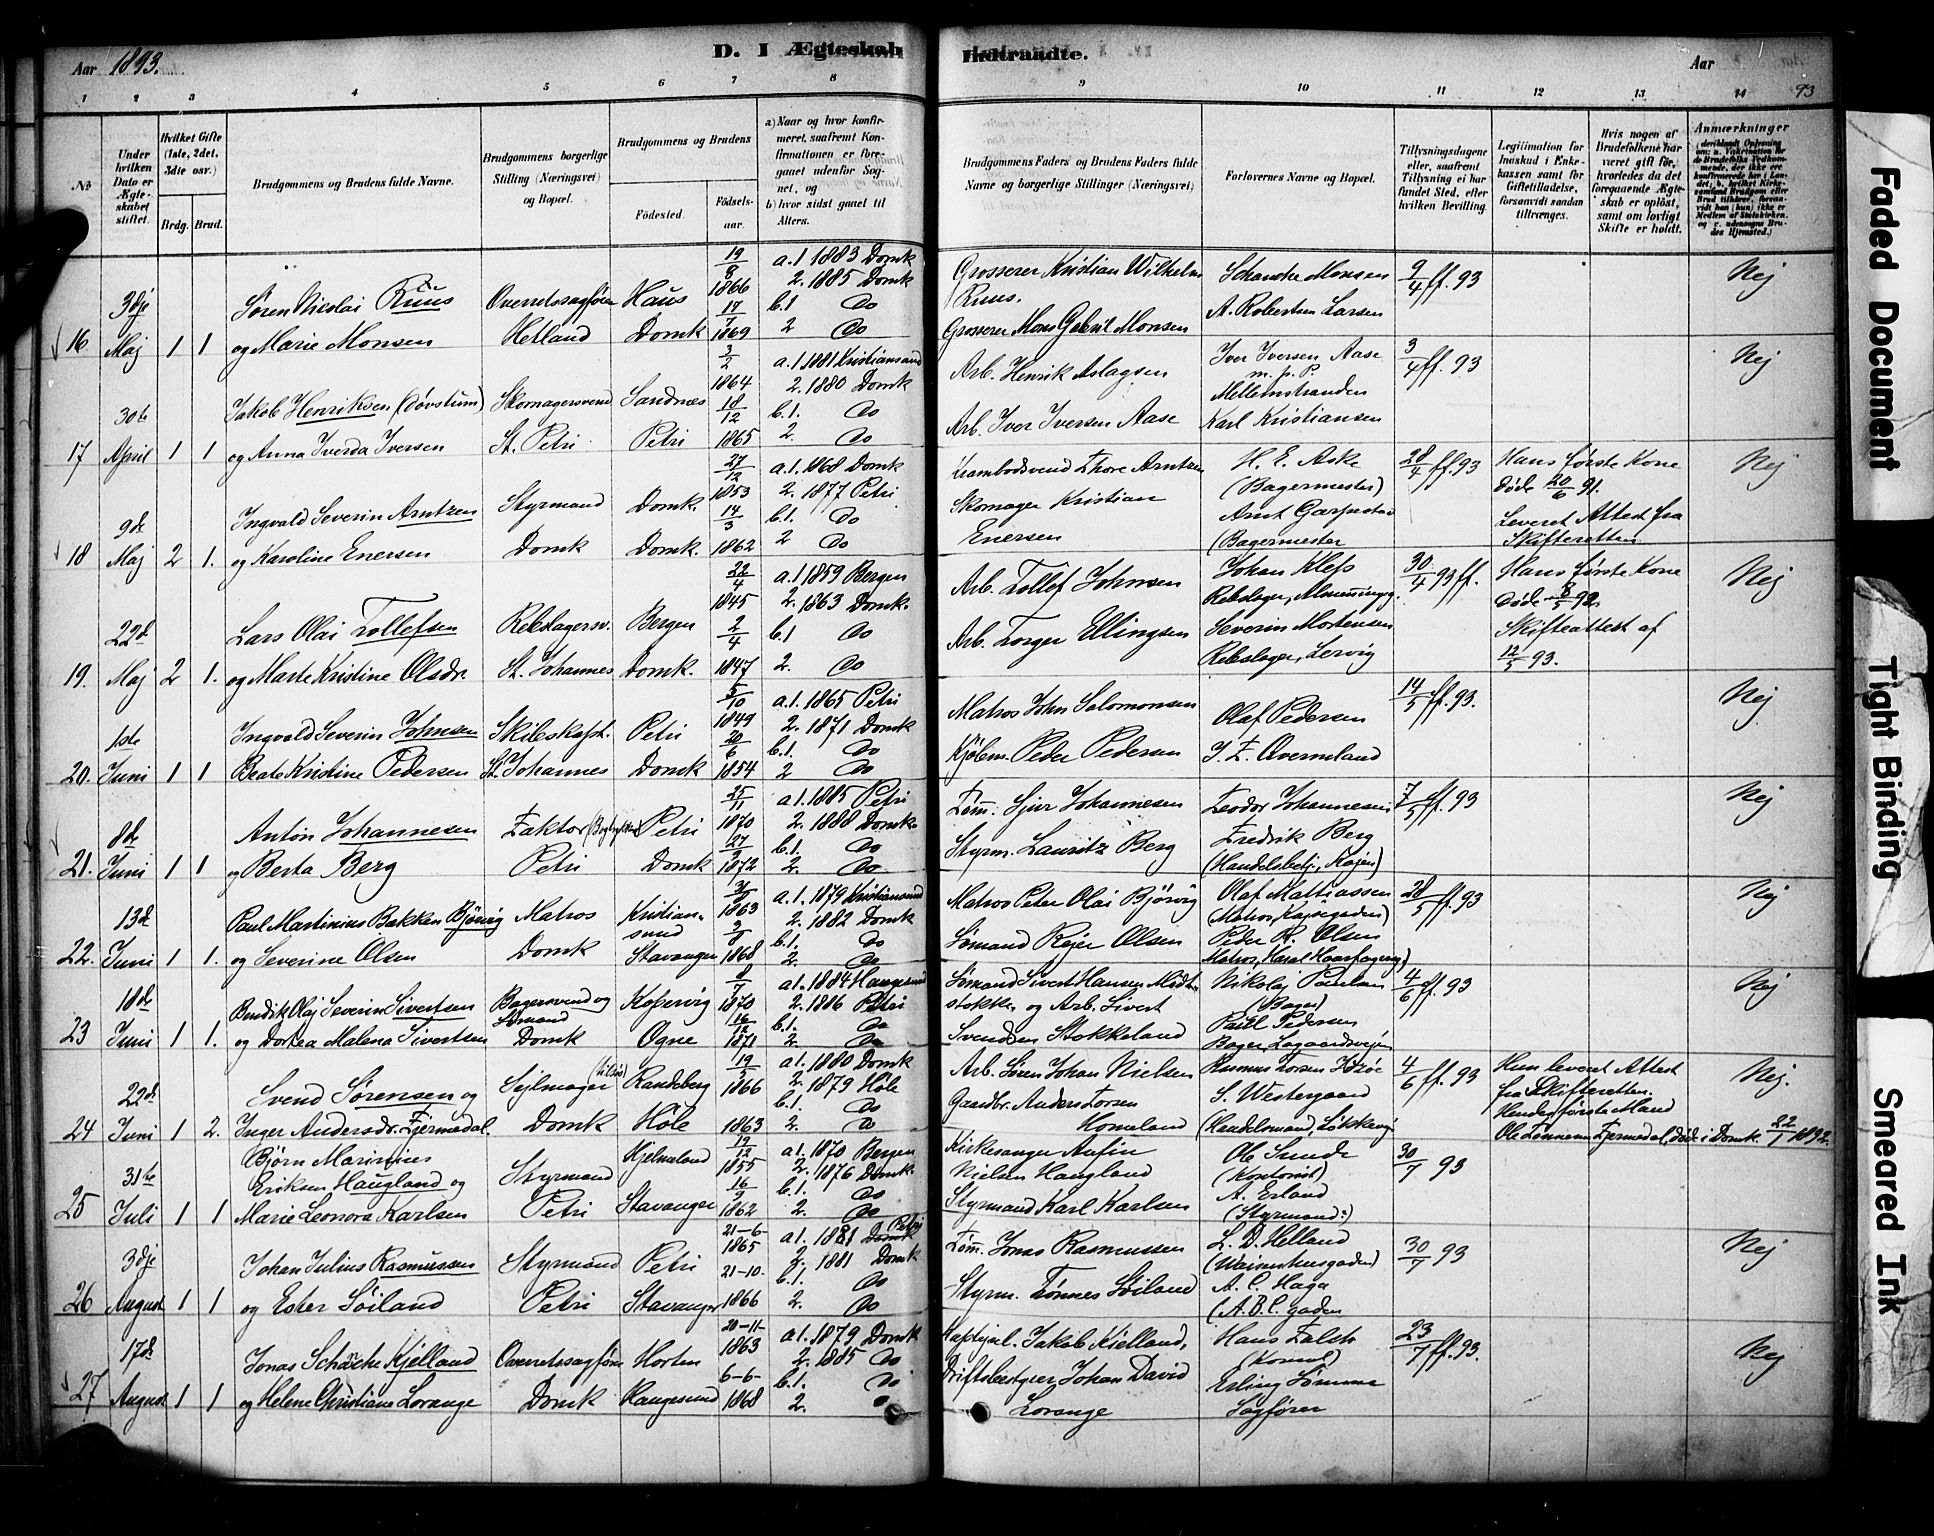 Aar 1893.
D. I Ægteskab Indtraadte.
Aar
93
1 2 3 4 5 6 7 8 9 10 11 12 13 14
No
Under hvilken Dato er Ægteskabet stiftet.
Hvilket Gifte (1ste, 2det, 3die osv.)
Brdg. Brud.
Brudgommens og Brudens fulde Navne.
Brudgommens borgerlige Stilling (Næringsvei) og Bopæl.
Brudgommens og Brudens
Fødested.
Fødselsaar.
a) Naar og hvor konfirmeret, saafremt Konfirmationen er foregaaet udenfor Sognet, og
b) hvor sidst gaaet til Alters.
Brudgommens Faders og Brudens Faders fulde Navne og borgerlige Stillinger (Næringsvei)
Forlovernes Navne og Bopæl.
Tillysningsdagene eller, saafremt Tillysning ei har fundet Sted, efter hvilken Bevilling.
Legitimation for Indskud i Enkekassen samt for Giftetilladelse, forsaavidt saadan tiltrænges.
Hvis nogen af Brudefolkene har været gift før, hvorledes da det foregaaende Ægteskab er opløst, samt om lovligt Skifte er holdt.
Anmærkninger
16 3dje Maj 1 1
Søren Nicolai Ruus
og Marie Monsen
Overretssagfører Hetland
Haus
Domk
19/8 1866
17/7 1869
a.1 1883 Domk
2. 1885 Domk
b.1 Do
2 Do
Grosserer Kristian Wilhelm Ruus.
Grosserer Mons Gabriel Monsen
Schancke Monsen
A. Robertsen Larsen
9/4 ff. 93
Nej
17 30te April 1 1
Jakob Henriksen (Døvstum)
og Anna Iverda Iversen
Skomagersvend St. Petri
Sandnæs
Petri
3/2 1864
18/12 1865
a.1. 1881 Kristiansand
2. 1880 Domk
b.1. Do
2. Do
Arb. Henrik Aslagsen
Arb. Iver Iversen Aase
Iver Iversen Aase
m. p. P.
Mellemstranden
Karl Kristiansen
3/4 ff. 93
Nej
18 9de Maj 2 1.
Ingvald Severin Arntzen
og Karoline Enersen
Styrmand Domk
Domk.
Domk.
27/12 1853
14/3 1862
a.1. 1868 Domk
2. 1877 Petri
b.1. Do
2 Do
Krambodsvend Thore Arntzen
Skomager Kristian Enersen
H. E. Aske
(Bagermester)
Arnt Garpestad
(Bagermester
28/4 ff. 93
Hans første Kone døde 20/6 91.
Leveret Attest fra Skifteretten
Nej
19. 22de Maj 2 1.
Lars Olai Tollefsen
og Marte Kristine Olsdr.
Rebslagersv. St. Johannes
Bergen
Domk.
22/4 1845
2/4 1847
a.1 1859 Bergen
2. 1863 Domk.
b.1 Do
2. Do
Arb. Tollof Johnsen
Arb. Torger Ellingsen
Johan Kless
Rebslager, Almenningsg.
Severin Mortensen
Rebslager, Lervig
30/4 93 ff.
Hans første Kone døde 8/5 92.
Skifteattest af 12/5 93.
Nej
20. 1ste Juni 1 1
Ingvald Severin Johnsen
Beate Kristine Pedersen
St. Johannes
Petri
Domk
5/10 1849
20/6 1854
a.1. 1865 Petri
2. 1871 Domk
b.1. Do
2 Do
Matros John Salomonsen
Peder Pedersen
Olaf Pedersen
14/5 ff. 93.
Nej
21. 8de Juni 1 1
Anton Johannesen
og Berta Berg
Faktor Petri
Petri
Domk
25/11 1870
1872
a.1. 1885 Petri
2. 1888 Domk.
b.1. Do
2. Do
Tøm. Sjur Johannesen
Styrm. Lauritz Berg
Teodor Johannesen
Fredrik Berg
(Handelsbetj., Kajen)
7/5 ff. 93
Nej
22. 13de Juni 1 1.
Paul Martinius Bakken Bjørvig
og Severine Olsen
Matros Domk
Kristiansund
Stavanger
1863
1868
a.1. 1879 Kristiansund
2. 1882 Domk
b.1. Do
2. Do
Matros Peter Olai Bjørvig
Sømand Rejer Olsen
Olaf Mattiassen
Peder R. Olsen
28/5 ff. 93
Nej
23 18de Juni 1 1.
Bendik Olaj Severin Sivertsen
og Dortea Malena Sivertsen
Bagersvend og Sømand
Domk
Kopervig
Ogne
8/7 1870
1871
a.1. 1884 Haugesund
2. 1886 Petri
b.1. Do
2. Do
Sømand Sivert Hansen Midtstokke og Arb. Sivert
Svendsen Stokkeland
Nikolaj Paulsen
(Bager)
Paul Pedersen
Bager, Lagaardsvejen
4/6 ff. 93
Nej
24 22de Juni 1 2.
Svend Sørensen og
Inger Andersdr. Fjermedal
Sejlmager Domk
Randeberg
Høle
19/5 1866
1863
a.1. 1880 Domk
2. 1879 Høle
b.1. Do
2. Do
Arb. Søren Johan Nielsen
Gaardbr. Anders Torsen Homeland
S. Westergaard
(Handelsmand, Løkkevej
4/6 ff. 93
Hun leveret Attest fra Skifteretten.
Hendes første Mand
Ole Tønnesen Fjermedal, død i Domk. 22/1 1892.
Nej.
25 31te Juli 1 1
Bjørn Marinius Eriksen Haugland og
Marie Leonora Karlsen
Styrmand Petri
Hjelmeland
Stavanger
19/12 1855
16/9 1862
a.1. 1870 Bergen
2. 1876 Domk
b.1. Do
2. Do
Kirkesanger Aufin Nielsen Haugland
Styrmand Karl Karlsen
Ole Sunde
(Kontorist)
A. Erland
(Styrmand:)
30/7 93
26 3dje August 1 1
Johan Julius Rasmussen
og Ester Søiland
Styrmand Petri
Petri
Stavanger
21-6- 1865
21-10- 1866
a.1. 1881 Domk Petri
2. 1881 Domk
b.1. Do
2. Do
Tøm. Jonas Rasmussen
Styrm. Tønnes Søiland
L. D. Helland
A. C. Haga
(A.B.C. gaden
30/7 93
Nej
27 17de August 1 1
Jonas Schancke Kjelland
og Helene Christiane Lorange
Overretssagfører Domk
Horten
Haugesund
20-11- 1863
6-6- 1868
a.1. 1879 Domk
2. 1885 Do
b.1. Do
2. Do
Jakob Kielland,
Driftsbestyrer Johan David Lorange
Hans Falck
(Konsul)
Erling Sømme
Sagfører
23/7 ff. 93.
Nej
Faded Document
Tight Binding
Smeared Ink